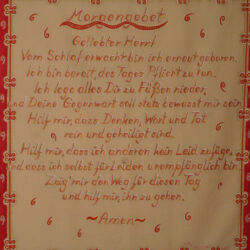 Morgengebet
Geliebter Herr!
Vom Schlaf erwacht bin ich erneut geboren.
Ich bin bereit, des Tages Pflicht zu tun.
Ich lege alles Dir zu Füßen nieder,
na Deine Gegenwart soll stets bewusst mir sein.
Hilf mir, dass Denken, Wort und Tat
rein und geheiligt sind.
Hilf mir, dass ich anderen kein Leid zufüge,
nd dass ich selbst für Leiden unempfänglich bin.
Zeig' mir den Weg für diesen Tag
und hilf mir, ihn zu gehen.
~Amen~